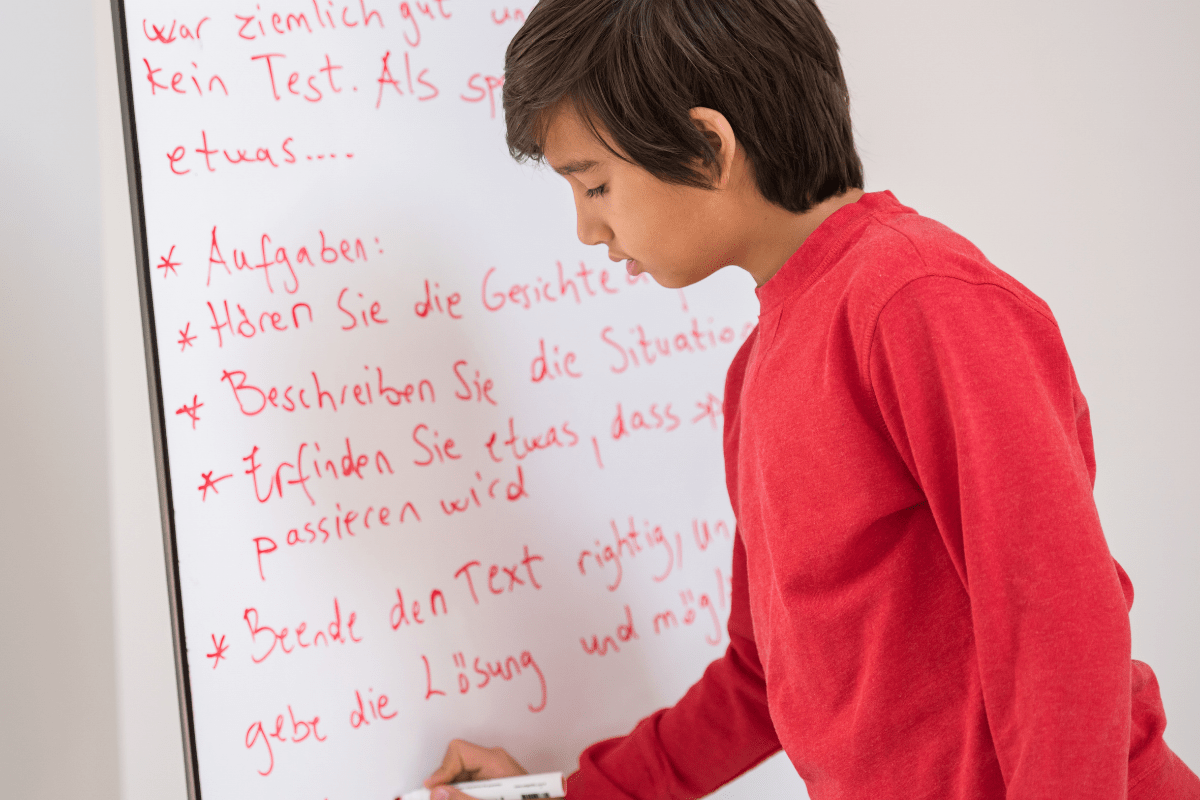 war ziemlich gut un
kein Test. Als sp
etwas....
* Aufgaben:
* Hören Sie die Gesichte
* Beschreiben Sie die Situatio
* Erfinden Sie etwas, dass
passieren wird
* Beende den Text rightig, un
gebe die Lösung und mögl